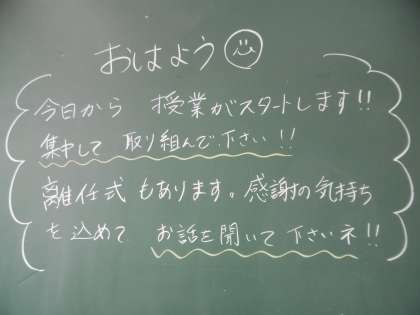 おはよう
今日から 授業がスタートします!!
集中して 取り組んで下さい!!
離任式 もあります。感謝の気持ち
を込めて お話を聞いて下さいネ!!